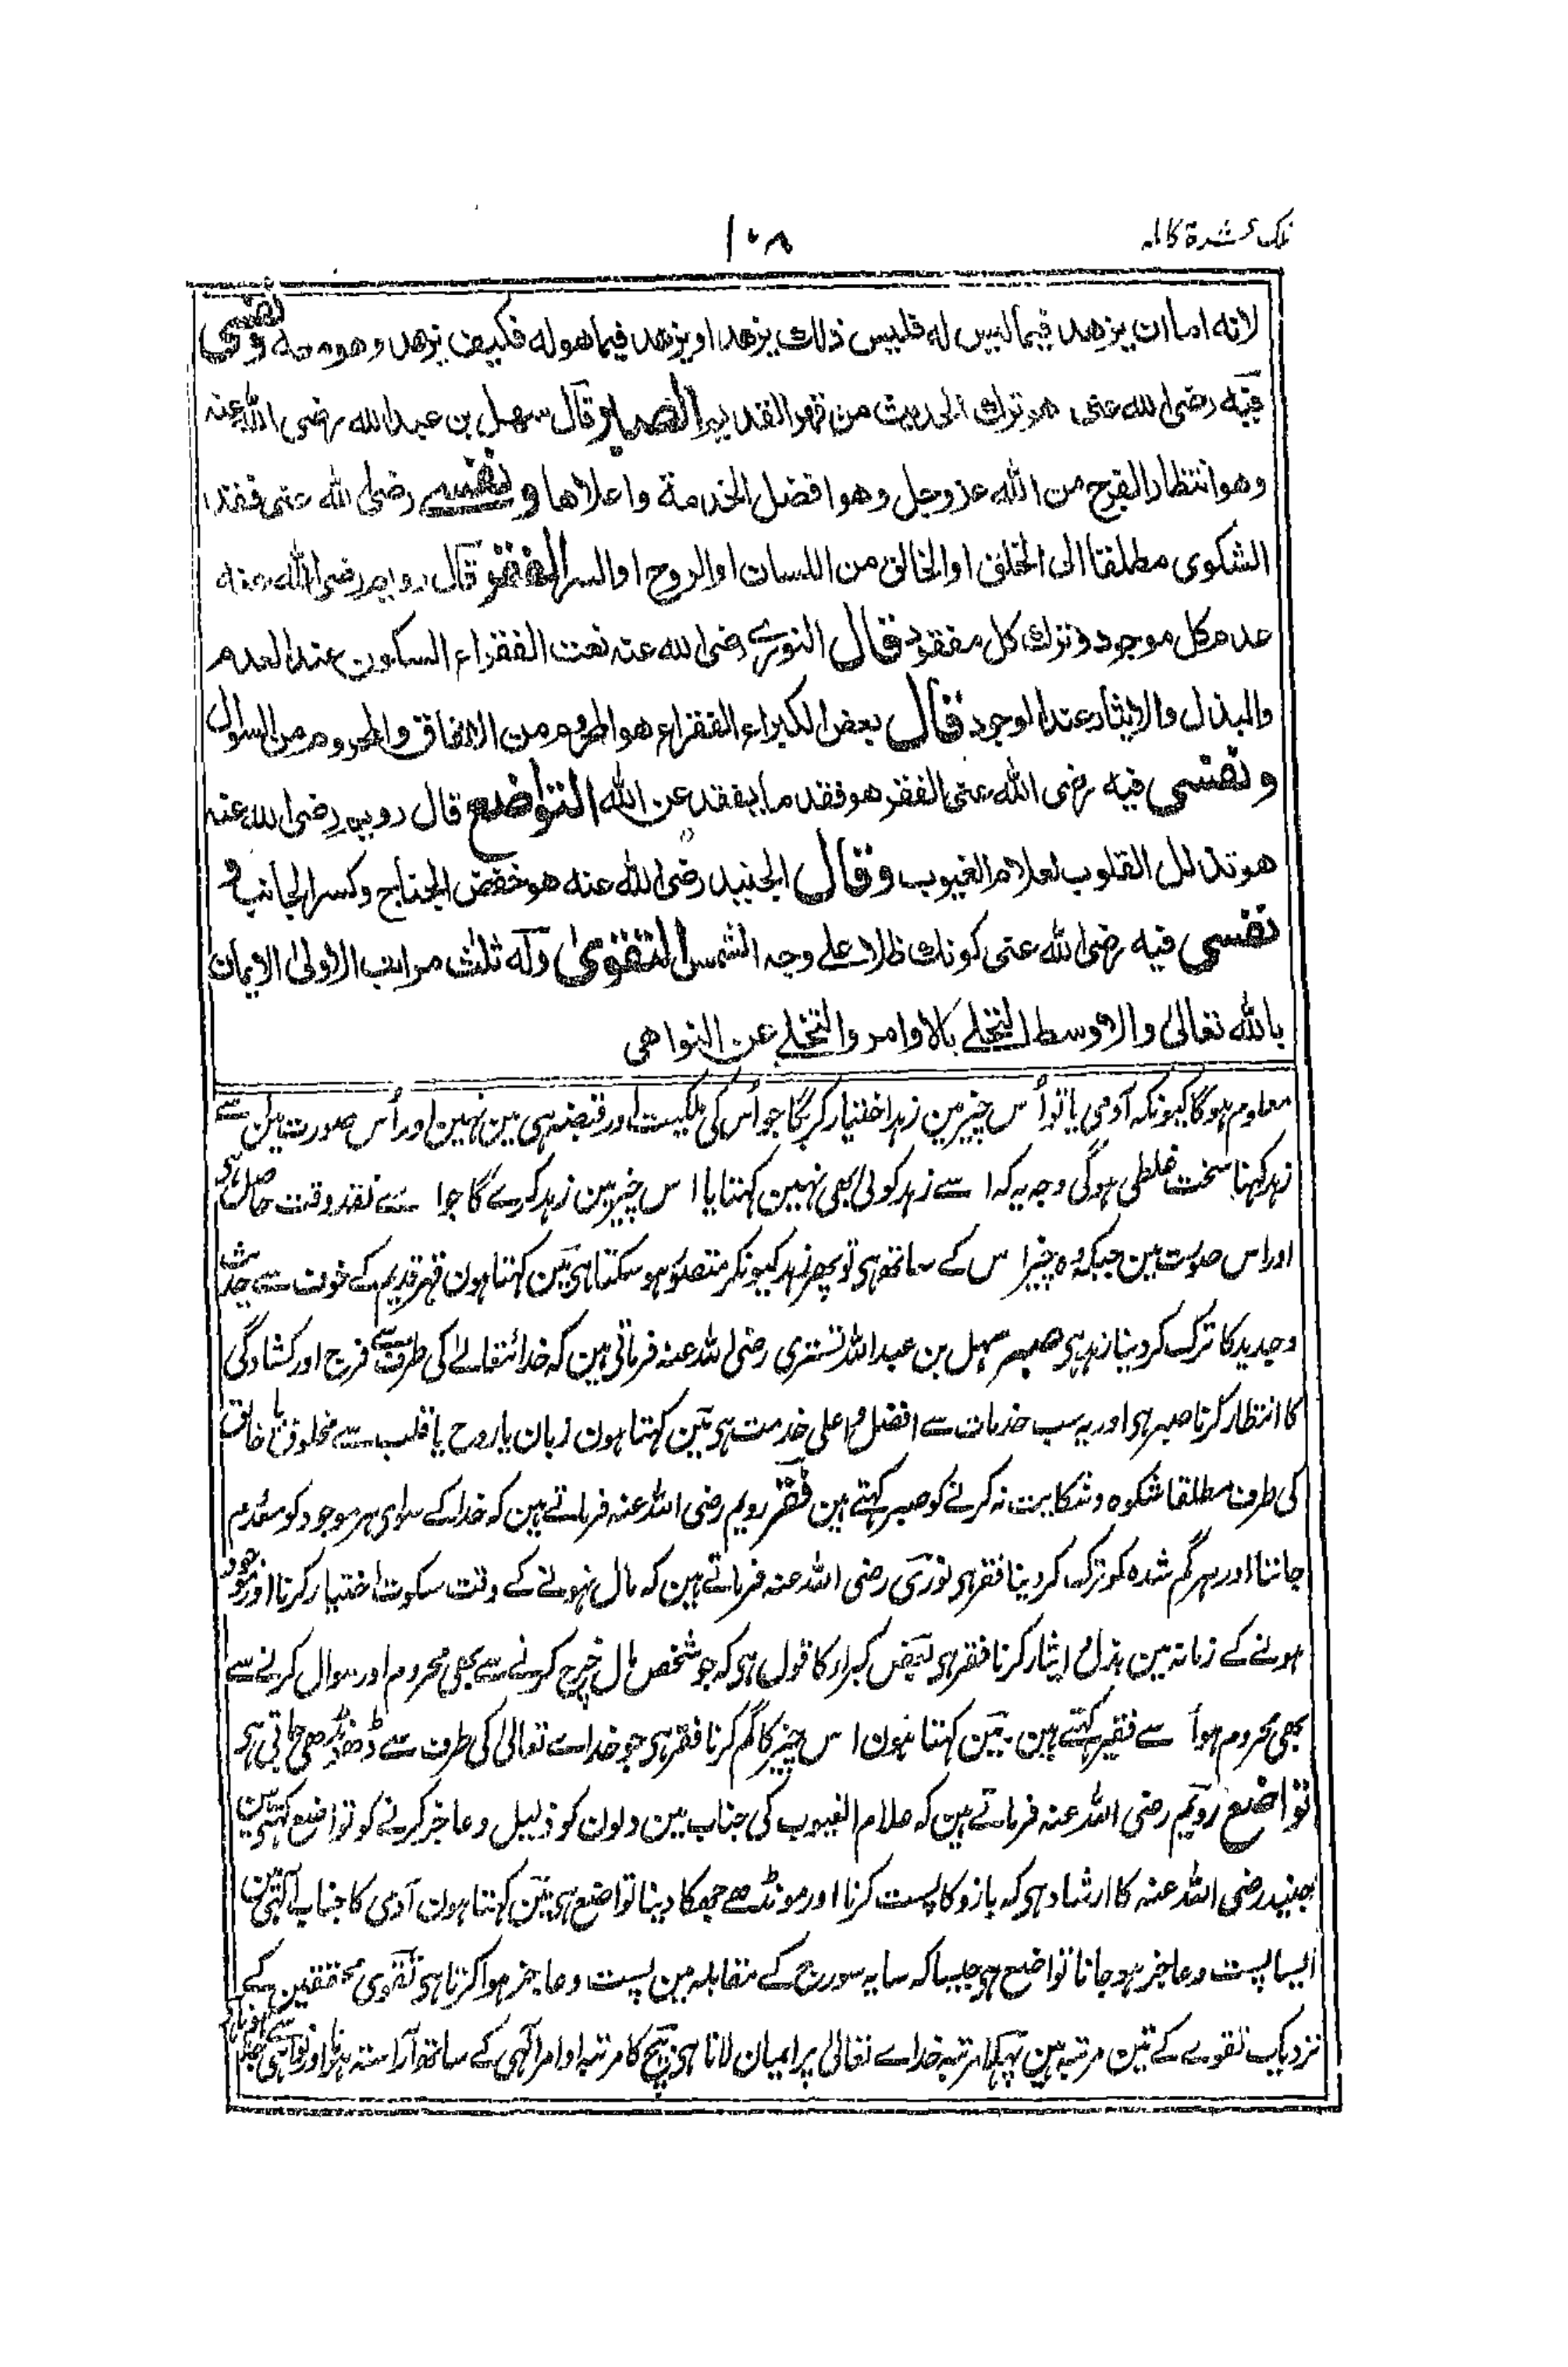 تلک عشرة کاملہ
١٠٨
لانه اما ان يزهد فيما ليس له فليس ذلك بزهد او يزهد فيما هو له فكيف يزهد وهو معه ونفسى
فيه رضى الله عنى هو ترك الحديث من قهر القديم الصبر قال سهل بن عبد الله رضى الله عنه
وهو انتظار الفرج من الله عز وجل وهو افضل الخدمة واعلاها ونفسى رضى الله عنى فقد
الشكوى مطلقا الى الخلق او الخالق من اللسان او الروح او السر الفقر قال رويم رضى الله عنه
عدم كل موجود وترك كل مفقود قال النورى رضى الله عنه نعت الفقراء السكون عند العدم
والبذل والايثار عند الوجود قال بعض الكبراء الفقراء هو المحروم من الانفاق والمحروم من السوال
ونفسى فيه رضى الله عنى الفقر هو فقد ما يفقد عن الله التواضع قال رويم رضى الله عنه
هو تذلل القلوب لعلام الغيوب وقال الجنيد رضى الله عنه هو خفض الجناح وكسر الجانب و
نفسى فيه رضى الله عنى كونك ظلا على وجه الشمس التقوى وله ثلث مراتب الاولى الايمان
بالله تعالى والاوسط التحلے بالاوامر والتخلے عن النواهى
معلوم ہوگا کیونکہ آدمی یا تو اُس چیز مین زہد اختیار کریگا جو اُس کی ملکیت اور قبضہ ہی مین نہین اور اُس صورت مین اسے
زہد کہنا سخت غلطی ہوگی وجہ یہ کہ اسے زہد کوئی بھی نہین کہتا یا اس چیز مین زہد کرے گا جو اسے نقد وقت حاصل ہی
اور اس صورت مین جبکہ وہ چیز اس کے ساتھ ہی تو پھر زہد کیونکر متصور ہو سکتا ہی مین کہتا ہون قہر قدیم کے خوف سے حدث
وجدید کا ترک کر دینا زہد ہی صبر سہل بن عبد اللہ تستری رضی اللہ عنہ فرماتی ہین کہ خدائتعالے کی طرف سے فرج اور کشادگی
کا انتظار کرنا صبر ہی اور یہ سب خدمات سے افضل و اعلی خدمت ہی مین کہتا ہون زبان یا روح یا قلب سے مخلوق یا خالق
کی طرف مطلقا شکوہ و شکایت نہ کرنے کو صبر کہتے ہین فقر رویم رضی اللہ عنہ فرماتے ہین کہ خدا کے سوای ہر موجود کو معدوم
جاننا اور ہر گم شدہ کو ترک کر دینا فقر ہی نوری رضی اللہ عنہ فرماتے ہین کہ مال نہونے کے وقت سکوت اختیار کرنا اور موجود
ہونے کے زمانہ مین بذل و ایثار کرنا فقر ہی بعض کبراء کا قول ہی کہ جو شخص مال خرچ کرنے سے بھی محروم اور سوال کرنے سے
بھی محروم ہو اُسے فقیر کہتے ہین۔ مین کہتا ہون اس چیز کا گم کرنا فقر ہی جو خداے تعالی کی طرف سے ڈھونڈھی جاتی ہی
تواضع رویم رضی اللہ عنہ فرماتے ہین کہ علام الغیوب کی جناب مین دلون کو ذلیل و عاجز کرنے کو تواضع کہتی ہین
جنید رضی اللہ عنہ کا ارشاد ہی کہ بازو کا پست کرنا اور مونڈھے جھکا دینا تواضع ہی مین کہتا ہون آدمی کا جناب الٰہی مین
ایسا پست و عاجز ہو جانا تواضع ہی جیسا کہ سایہ سورج کے مقابلہ مین پست و عاجز ہوا کرتا ہی تقوی محققین کے
نزدیک تقوے کے تین مرتبہ ہین پہلا مرتبہ خداے تعالی پر ایمان لانا ہی بیچ کا مرتبہ اوامر الٰہی کے ساتھ آراستہ ہونا اور نواہی سے